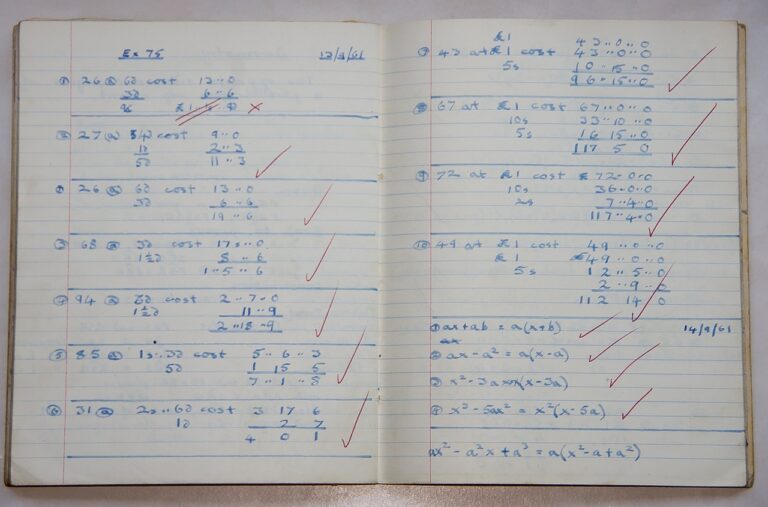 Ex 75 12/9/61
① 26 @ 6d cost 13 .. 0
3d 6 .. 6
9d
② 27 @ 4d cost 9 .. 0
1d 2 .. 3
5d 11 .. 3
26 @ 6d cost 13 .. 0
3d 6 .. 6
19 .. 6
③ 68 @ 3d cost 17s .. 0
1½d 8 .. 6
1 .. 5 .. 6
④ 94 @ 6d cost 2 .. 7 .. 0
1½d 11 .. 9
2 .. 18 .. 9
⑤ 85 @ 1s .. 3d cost 5 .. 6 .. 3
5d 1 15 5
7 .. 1 .. 8
⑥ 31 @ 2s .. 6d cost 3 17 6
1d 2 7
4 0 1
£1 43 .. 0 .. 0
⑦ 43 at £1 cost 43 .. 0 .. 0
5s 10 .. 15 .. 0
96 .. 15 .. 0
⑧ 67 at £1 cost 67 .. 0 .. 0
10s 33 .. 10 .. 0
5s 16 15 .. 0
117 5 0
⑨ 72 at £1 cost £72 .. 0 .. 0
10s 36 .. 0 .. 0
2s 7 .. 4 .. 0
117 .. 4 .. 0
⑩ 49 at £1 cost 49 .. 0 .. 0
£1 49 .. 0 .. 0
5s 12 .. 5 .. 0
2 .. 9 .. 0
112 14 0
① ax + ab = a(x+b) 14/9/61
ax
② ax - a² = a(x-a)
③ x² - 3ax = x(x-3a)
④ x³ - 5ax² = x²(x-5a)
ax² - a²x + a³ = a(x²-a+a²)